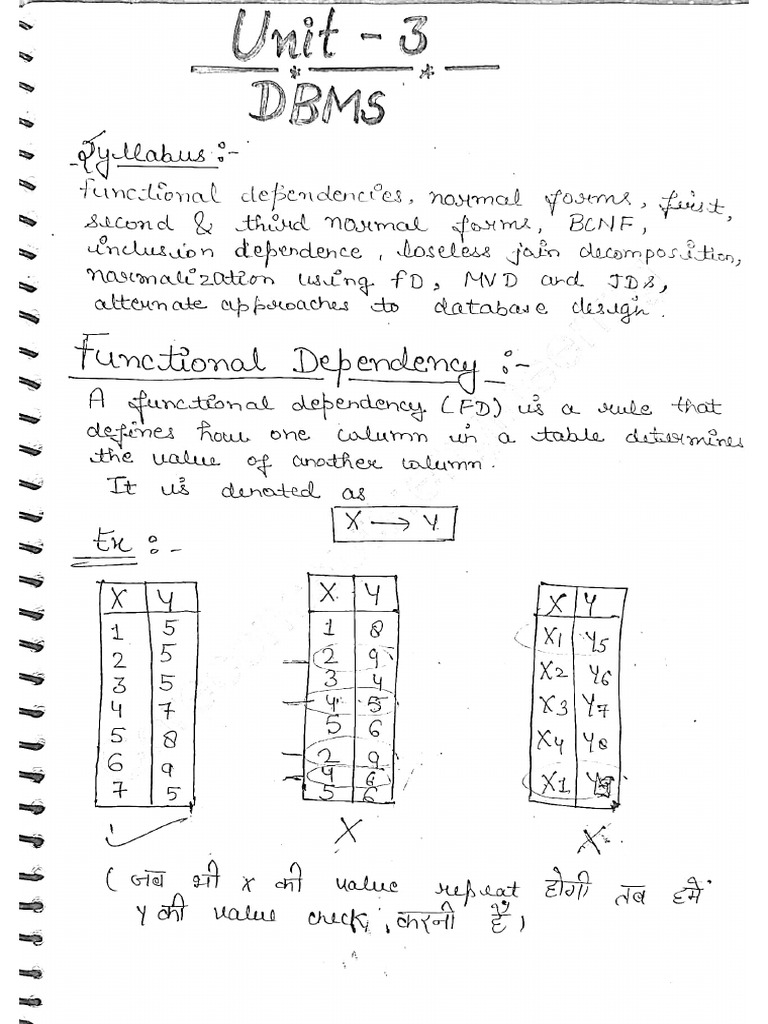 Unit - 3
DBMS
Syllabus :-
functional dependencies, normal forms, first,
second & third normal forms, BCNF,
inclusion dependence, loseless join decomposition,
normalization using FD, MVD and JDs,
alternate approaches to database design.
Functional Dependency :-
A functional dependency (FD) is a rule that
defines how one column in a table determines
the value of another column.
It is denoted as
X → Y
Ex :-
X Y
1 5
2 5
3 5
4 7
5 8
6 9
7 5
✓
X Y
1 8
2 9
3 4
4 5
5 6
2 9
4 6
5 6
X
X Y
X1 Y5
X2 Y6
X3 Y7
X4 Y8
X1
X
( जब भी X की value repeat होगी तब हमें
Y की value check करनी है )